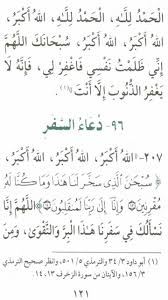 الْحَمْدُ لِلَّهِ، الْحَمْدُ لِلَّهِ، اللَّهُ أَكْبَرُ،
اللَّهُ أَكْبَرُ، اللَّهُ أَكْبَرُ، سُبْحَانَكَ اللَّهُمَّ
إِنِّي ظَلَمْتُ نَفْسِي فَاغْفِرْ لِي، فَإِنَّهُ لَا
يَغْفِرُ الذُّنُوبَ إِلَّا أَنْتَ (١).
٩٦- دُعَاءُ السَّفَرِ
٢٠٧- اللَّهُ أَكْبَرُ، اللَّهُ أَكْبَرُ، اللَّهُ أَكْبَرُ،
﴿سُبْحَنَ الَّذِي سَخَّرَ لَنَا هَذَا وَمَا كُنَّا لَهُ
مُقْرِنِينَ * وَإِنَّا إِلَى رَبِّنَا لَمُنقَلِبُونَ﴾ اللَّهُمَّ إِنَّا
نَسْأَلُكَ فِي سَفَرِنَا هَذَا الْبِرَّ وَالتَّقْوَى، وَمِنَ
(١) أبو داود ٣٤/٣ والترمذي ٥٠١/٥، وانظر صحيح الترمذي
١٥٦/٣، والآيتان من سورة الزخرف ١٣، ١٤.
١٢١